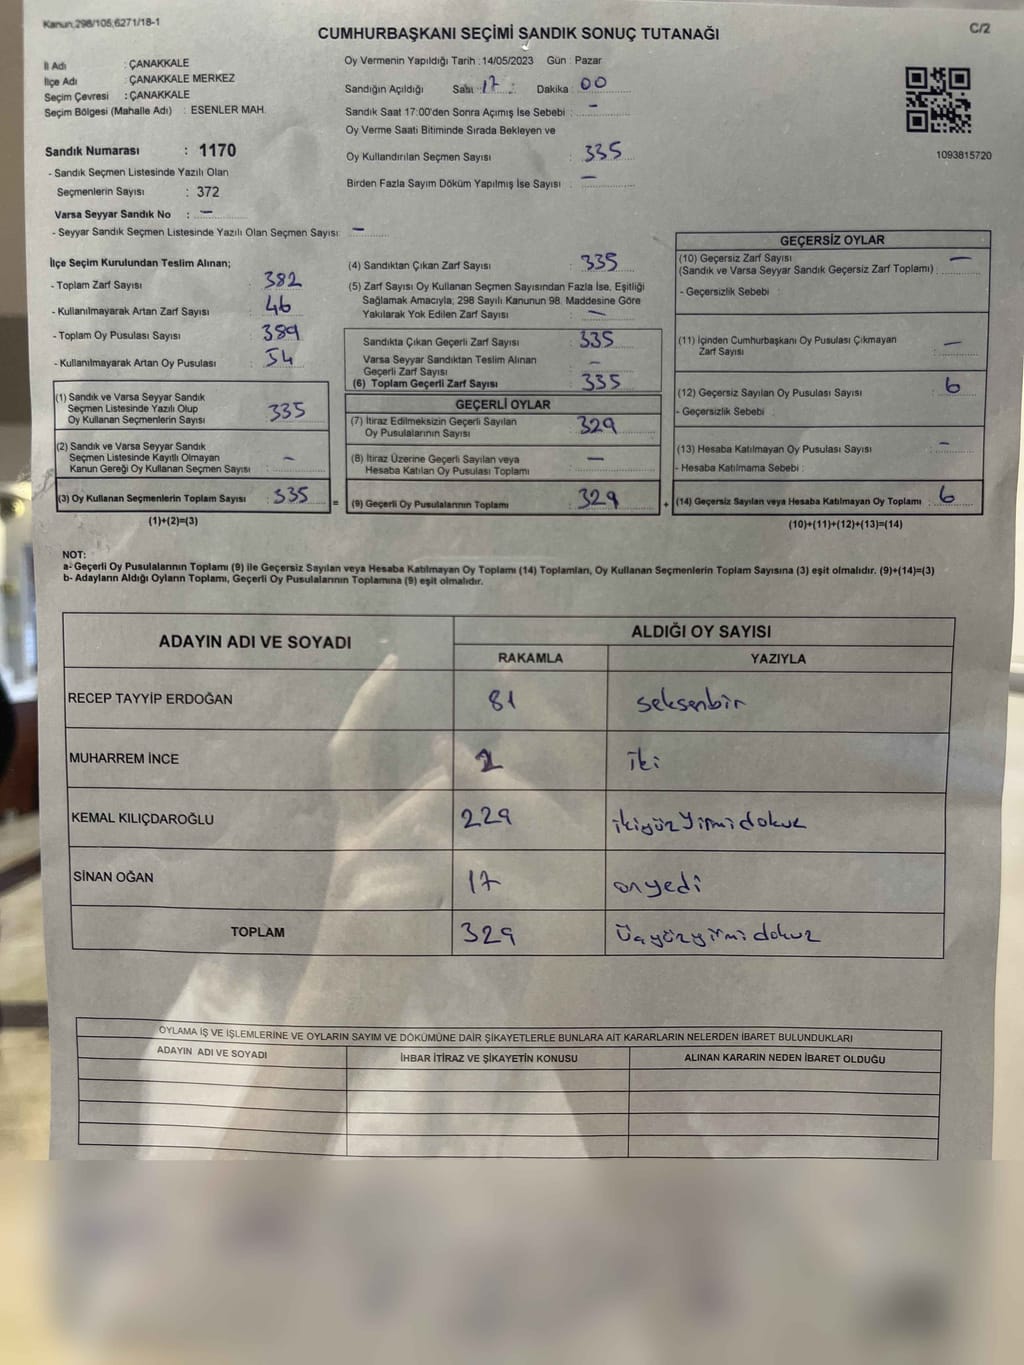 Kanun;298/105;6271/18-1
C/2
CUMHURBAŞKANI SEÇİMİ SANDIK SONUÇ TUTANAĞI
İl Adı : ÇANAKKALE
İlçe Adı : ÇANAKKALE MERKEZ
Seçim Çevresi : ÇANAKKALE
Seçim Bölgesi (Mahalle Adı) : ESENLER MAH.
Oy Vermenin Yapıldığı Tarih : 14/05/2023 Gün : Pazar
Sandığın Açıldığı Saat 17 : Dakika 00
Sandık Saat 17:00'den Sonra Açımış İse Sebebi : –
Oy Verme Saati Bitiminde Sırada Bekleyen ve
Oy Kullandırılan Seçmen Sayısı : 335
Birden Fazla Sayım Döküm Yapılmış İse Sayısı : –
1093815720
Sandık Numarası : 1170
- Sandık Seçmen Listesinde Yazılı Olan
Seçmenlerin Sayısı : 372
Varsa Seyyar Sandık No : –
- Seyyar Sandık Seçmen Listesinde Yazılı Olan Seçmen Sayısı: –
İlçe Seçim Kurulundan Teslim Alınan;
- Toplam Zarf Sayısı : 382
- Kullanılmayarak Artan Zarf Sayısı : 46
- Toplam Oy Pusulası Sayısı : 389
- Kullanılmayarak Artan Oy Pusulası : 54
(1) Sandık ve Varsa Seyyar Sandık
Seçmen Listesinde Yazılı Olup
Oy Kullanan Seçmenlerin Sayısı : 335
(2) Sandık ve Varsa Seyyar Sandık
Seçmen Listesinde Kayıtlı Olmayan
Kanun Gereği Oy Kullanan Seçmen Sayısı : –
(3) Oy Kullanan Seçmenlerin Toplam Sayısı : 335
(1)+(2)=(3)
(4) Sandıktan Çıkan Zarf Sayısı : 335
(5) Zarf Sayısı Oy Kullanan Seçmen Sayısından Fazla İse, Eşitliği
Sağlamak Amacıyla; 298 Sayılı Kanunun 98. Maddesine Göre
Yakılarak Yok Edilen Zarf Sayısı : –
Sandıkta Çıkan Geçerli Zarf Sayısı : 335
Varsa Seyyar Sandıktan Teslim Alınan
Geçerli Zarf Sayısı : –
(6) Toplam Geçerli Zarf Sayısı : 335
GEÇERLİ OYLAR
(7) İtiraz Edilmeksizin Geçerli Sayılan
Oy Pusulalarının Sayısı : 329
(8) İtiraz Üzerine Geçerli Sayılan veya
Hesaba Katılan Oy Pusulası Toplamı : –
= (9) Geçerli Oy Pusulalarının Toplamı : 329
GEÇERSİZ OYLAR
(10) Geçersiz Zarf Sayısı
(Sandık ve Varsa Seyyar Sandık Geçersiz Zarf Toplamı) : –
- Geçersizlik Sebebi :
(11) İçinden Cumhurbaşkanı Oy Pusulası Çıkmayan
Zarf Sayısı : –
(12) Geçersiz Sayılan Oy Pusulası Sayısı : 6
- Geçersizlik Sebebi :
(13) Hesaba Katılmayan Oy Pusulası Sayısı : –
- Hesaba Katılmama Sebebi :
+ (14) Geçersiz Sayılan veya Hesaba Katılmayan Oy Toplamı : 6
(10)+(11)+(12)+(13)=(14)
NOT:
a- Geçerli Oy Pusulalarının Toplamı (9) ile Geçersiz Sayılan veya Hesaba Katılmayan Oy Toplamı (14) Toplamları, Oy Kullanan Seçmenlerin Toplam Sayısına (3) eşit olmalıdır. (9)+(14)=(3)
b- Adayların Aldığı Oyların Toplamı, Geçerli Oy Pusulalarının Toplamına (9) eşit olmalıdır.
ADAYIN ADI VE SOYADI ALDIĞI OY SAYISI
RAKAMLA YAZIYLA
RECEP TAYYİP ERDOĞAN 81 seksenbir
MUHARREM İNCE 2 iki
KEMAL KILIÇDAROĞLU 229 ikiyüzyirmidokuz
SİNAN OĞAN 17 onyedi
TOPLAM 329 Üçyüzyirmidokuz
OYLAMA İŞ VE İŞLEMLERİNE VE OYLARIN SAYIM VE DÖKÜMÜNE DAİR ŞİKAYETLERLE BUNLARA AİT KARARLARIN NELERDEN İBARET BULUNDUKLARI
ADAYIN ADI VE SOYADI İHBAR İTİRAZ VE ŞİKAYETİN KONUSU ALINAN KARARIN NEDEN İBARET OLDUĞU